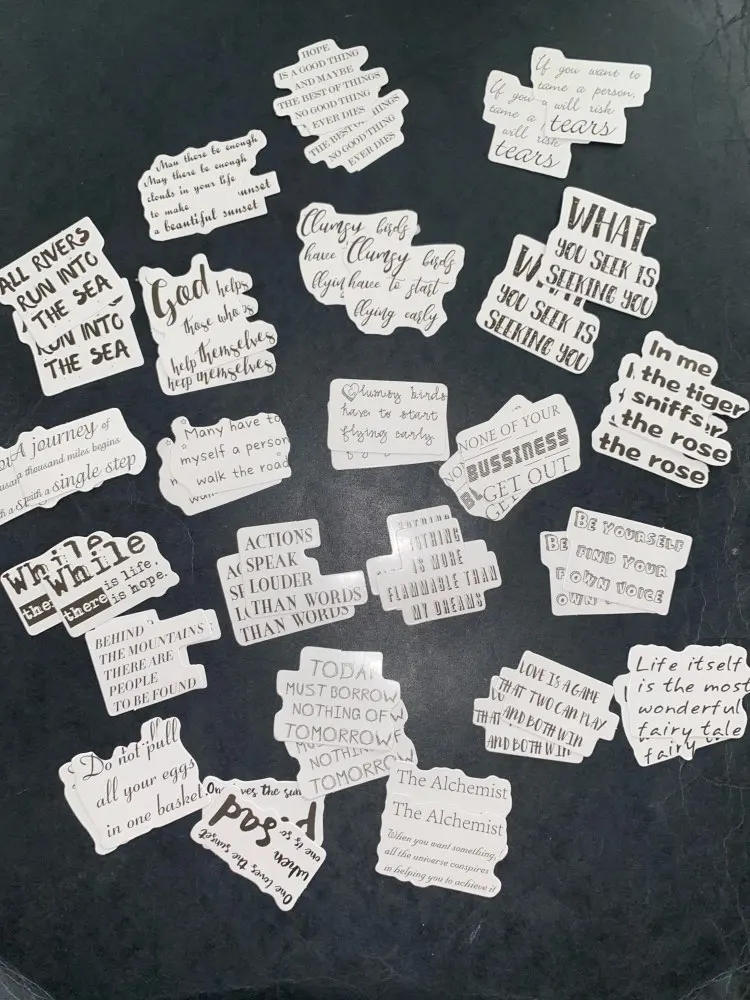 HOPE
IS A GOOD THING
AND MAYBE
THE BEST OF THINGS
NO GOOD THING
EVER DIES
THINGS
THE BEST
NO GOOD THING
EVER DIES
If you want to
tame a person,
will risk
tears
If you
tame a
will risk
tears
May there be enough
May there be enough
clouds in your life
to make
sunset
a beautiful sunset
ALL RIVERS
RUN INTO
THE SEA
RUN INTO
THE SEA
God helps
those who
help themselves
help themselves
Clumsy birds
have
flying
Clumsy birds
have to start
flying early
WHAT
YOU SEEK IS
SEEKING YOU
YOU SEEK IS
SEEKING YOU
In me
the tiger
sniffs
the rose
the rose
A journey of
thousand miles begins
with a single step
Many have to
myself a person
walk the road
Clumsy birds
have to start
flying early
NONE OF YOUR
BUSSINESS
GET OUT
While
While
there is life,
there is hope.
ACTIONS
SPEAK
LOUDER
THAN WORDS
THAN WORDS
NOTHING
NOTHING
IS MORE
FLAMMABLE THAN
MY DREAMS
BE YOURSELF
BE
FIND YOUR
OWN VOICE
OWN
BEHIND
THE MOUNTAINS
THERE ARE
PEOPLE
TO BE FOUND
TODAY
MUST BORROW
NOTHING OF
TOMORROW
NOTHING
TOMORROW
LOVE IS A GAME
THAT TWO CAN PLAY
THAT
AND BOTH WIN
AND BOTH WIN
Life itself
is the most
wonderful
fairy tale
fairy
Do not pull
all your eggs
in one basket
One loves the sun
One loves the sunset
when
one is so
sad
The Alchemist
The Alchemist
When you want something,
all the universe conspires
in helping you to achieve it